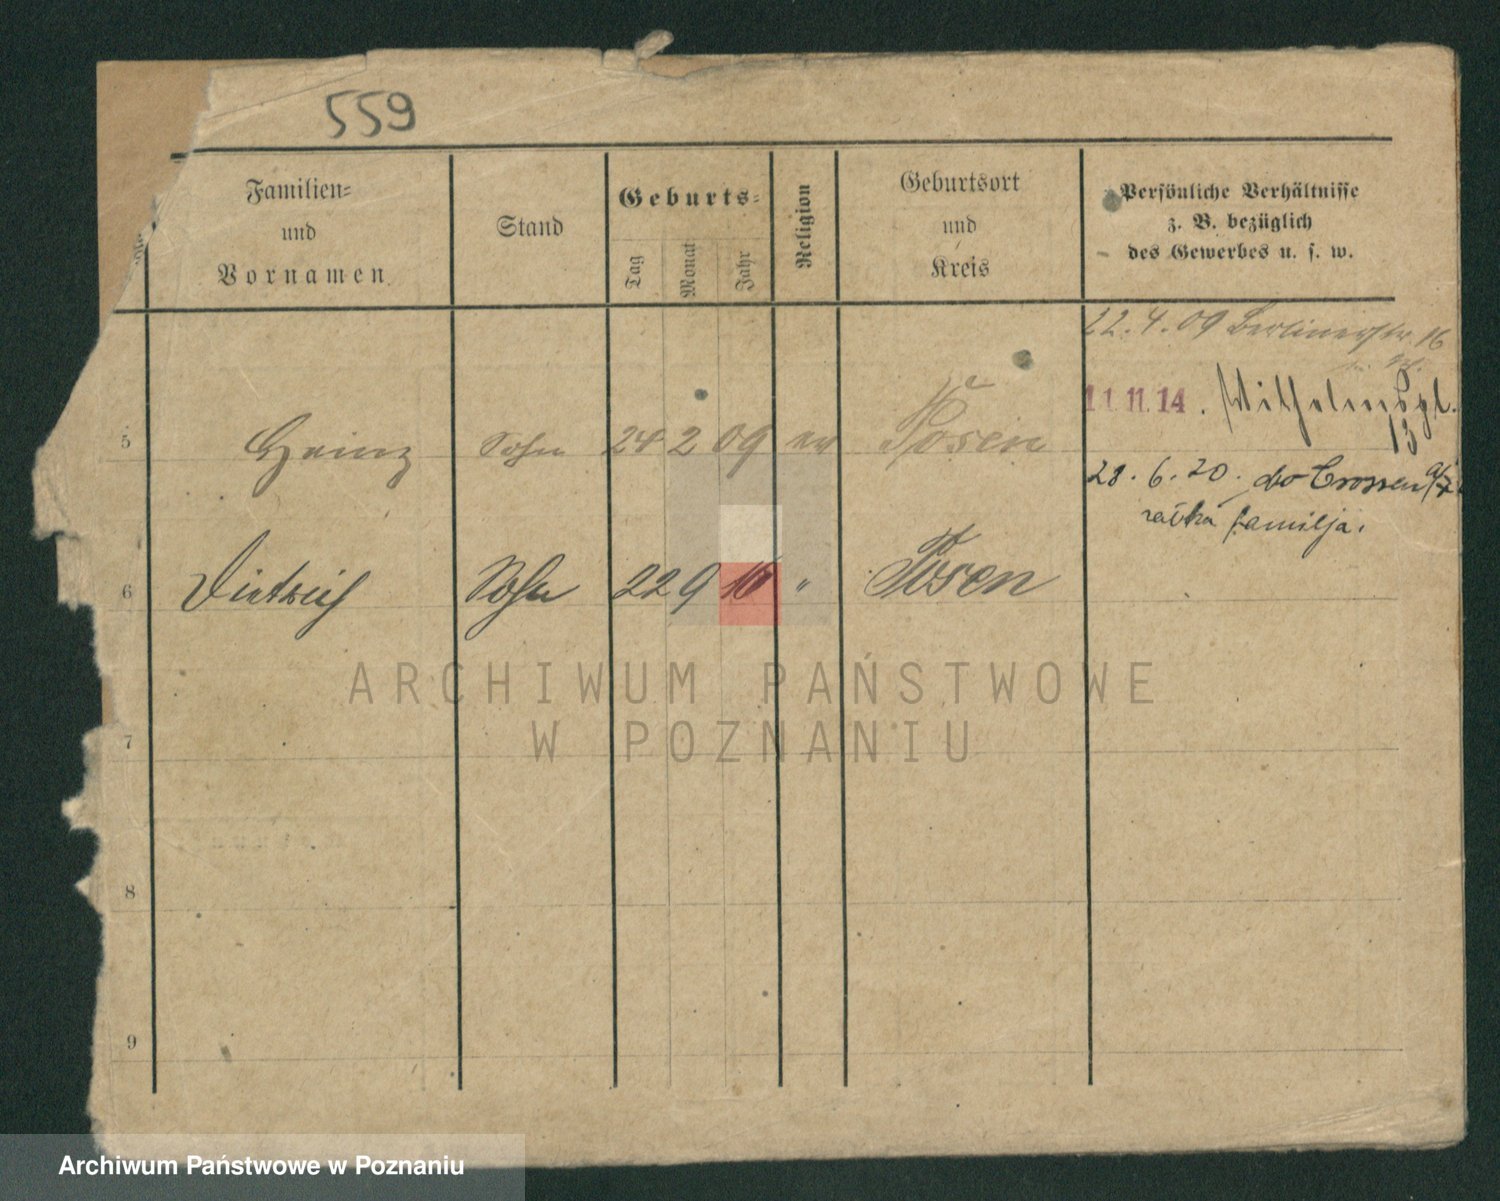 559
Familien=
und
Vornamen
Stand
Geburts=
Tag
Monat
Jahr
Religion
Geburtsort
und
Kreis
Persönliche Verhältnisse
z. B. bezüglich
des Gewerbes u. s. w.
22. 4. 09 Berlinerstr. 16
11.11.14. Wilhelmspl.
13
5 Heinz Sohn 24 2 09 ev Posen
28. 6. 20. do Crossen a/
familja.
6 Dietrich Sohn 22 9 10 " Posen
ARCHIWUM PAŃSTWOWE
W POZNANIU
7
8
9
Archiwum Państwowe w Poznaniu